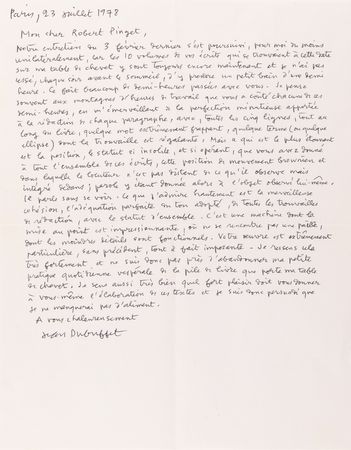 Paris, 23 juillet 1978
Mon cher Robert Pinget,
Notre entretien du 3 février dernier s'est poursuivi, pour moi du moins
unilatéralement, car les 10 volumes de vos écrits qui se trouvaient à cette date
sur ma table de chevet y sont toujours encore maintenant et je n'ai pas
cessé, chaque soir avant le sommeil, d'y prendre un petit bain d'une demi
heure. Ce fait beaucoup de demi-heures passées avec vous. Je pense
souvent aux montagnes d'heures de travail que vous a coûté chacune de ces
demi-heures, en m'émerveillant à la perfection minutieuse apportée
à la rédaction de chaque paragraphe, avec, toutes les cinq lignes, tout au
long du livre, quelque mot extrêmement frappant, quelque terme (ou quelque
ellipse) dont la trouvaille est régalante. Mais ce qui est le plus étonnant
est la position, le statut si insolite, et si opérant, que vous avez donné
à tout l'ensemble de ces écrits, cette position de mouvement brownien et
dans laquelle le conteur n'est pas distant de ce qu'il observe mais
intégré dedans, parole étant donnée alors à l'objet observé lui-même.
Et parle sans se voir. Ce que j'admire hautement est la merveilleuse
cohésion, l'adéquation parfaite du ton adopté, de toutes les trouvailles
de rédaction, avec le statut d'ensemble. C'est une machine dont la
mise au point est impressionnante, où ne se rencontre pas une paille,
dont les moindres détails sont fonctionnels. Votre œuvre est extrêmement
particulière, sans précédent, tout à fait importante. Je ressens cela
très fortement et ne suis donc pas près d'abandonner ma petite
pratique quotidienne vespérale de la pile de livres que porte ma table
de chevet. Je sens aussi très bien quel fort plaisir doit vous donner
à vous-même l'élaboration de ces textes et je suis donc persuadé que
je ne manquerai pas d'aliment.
A vous chaleureusement
Jean Dubuffet